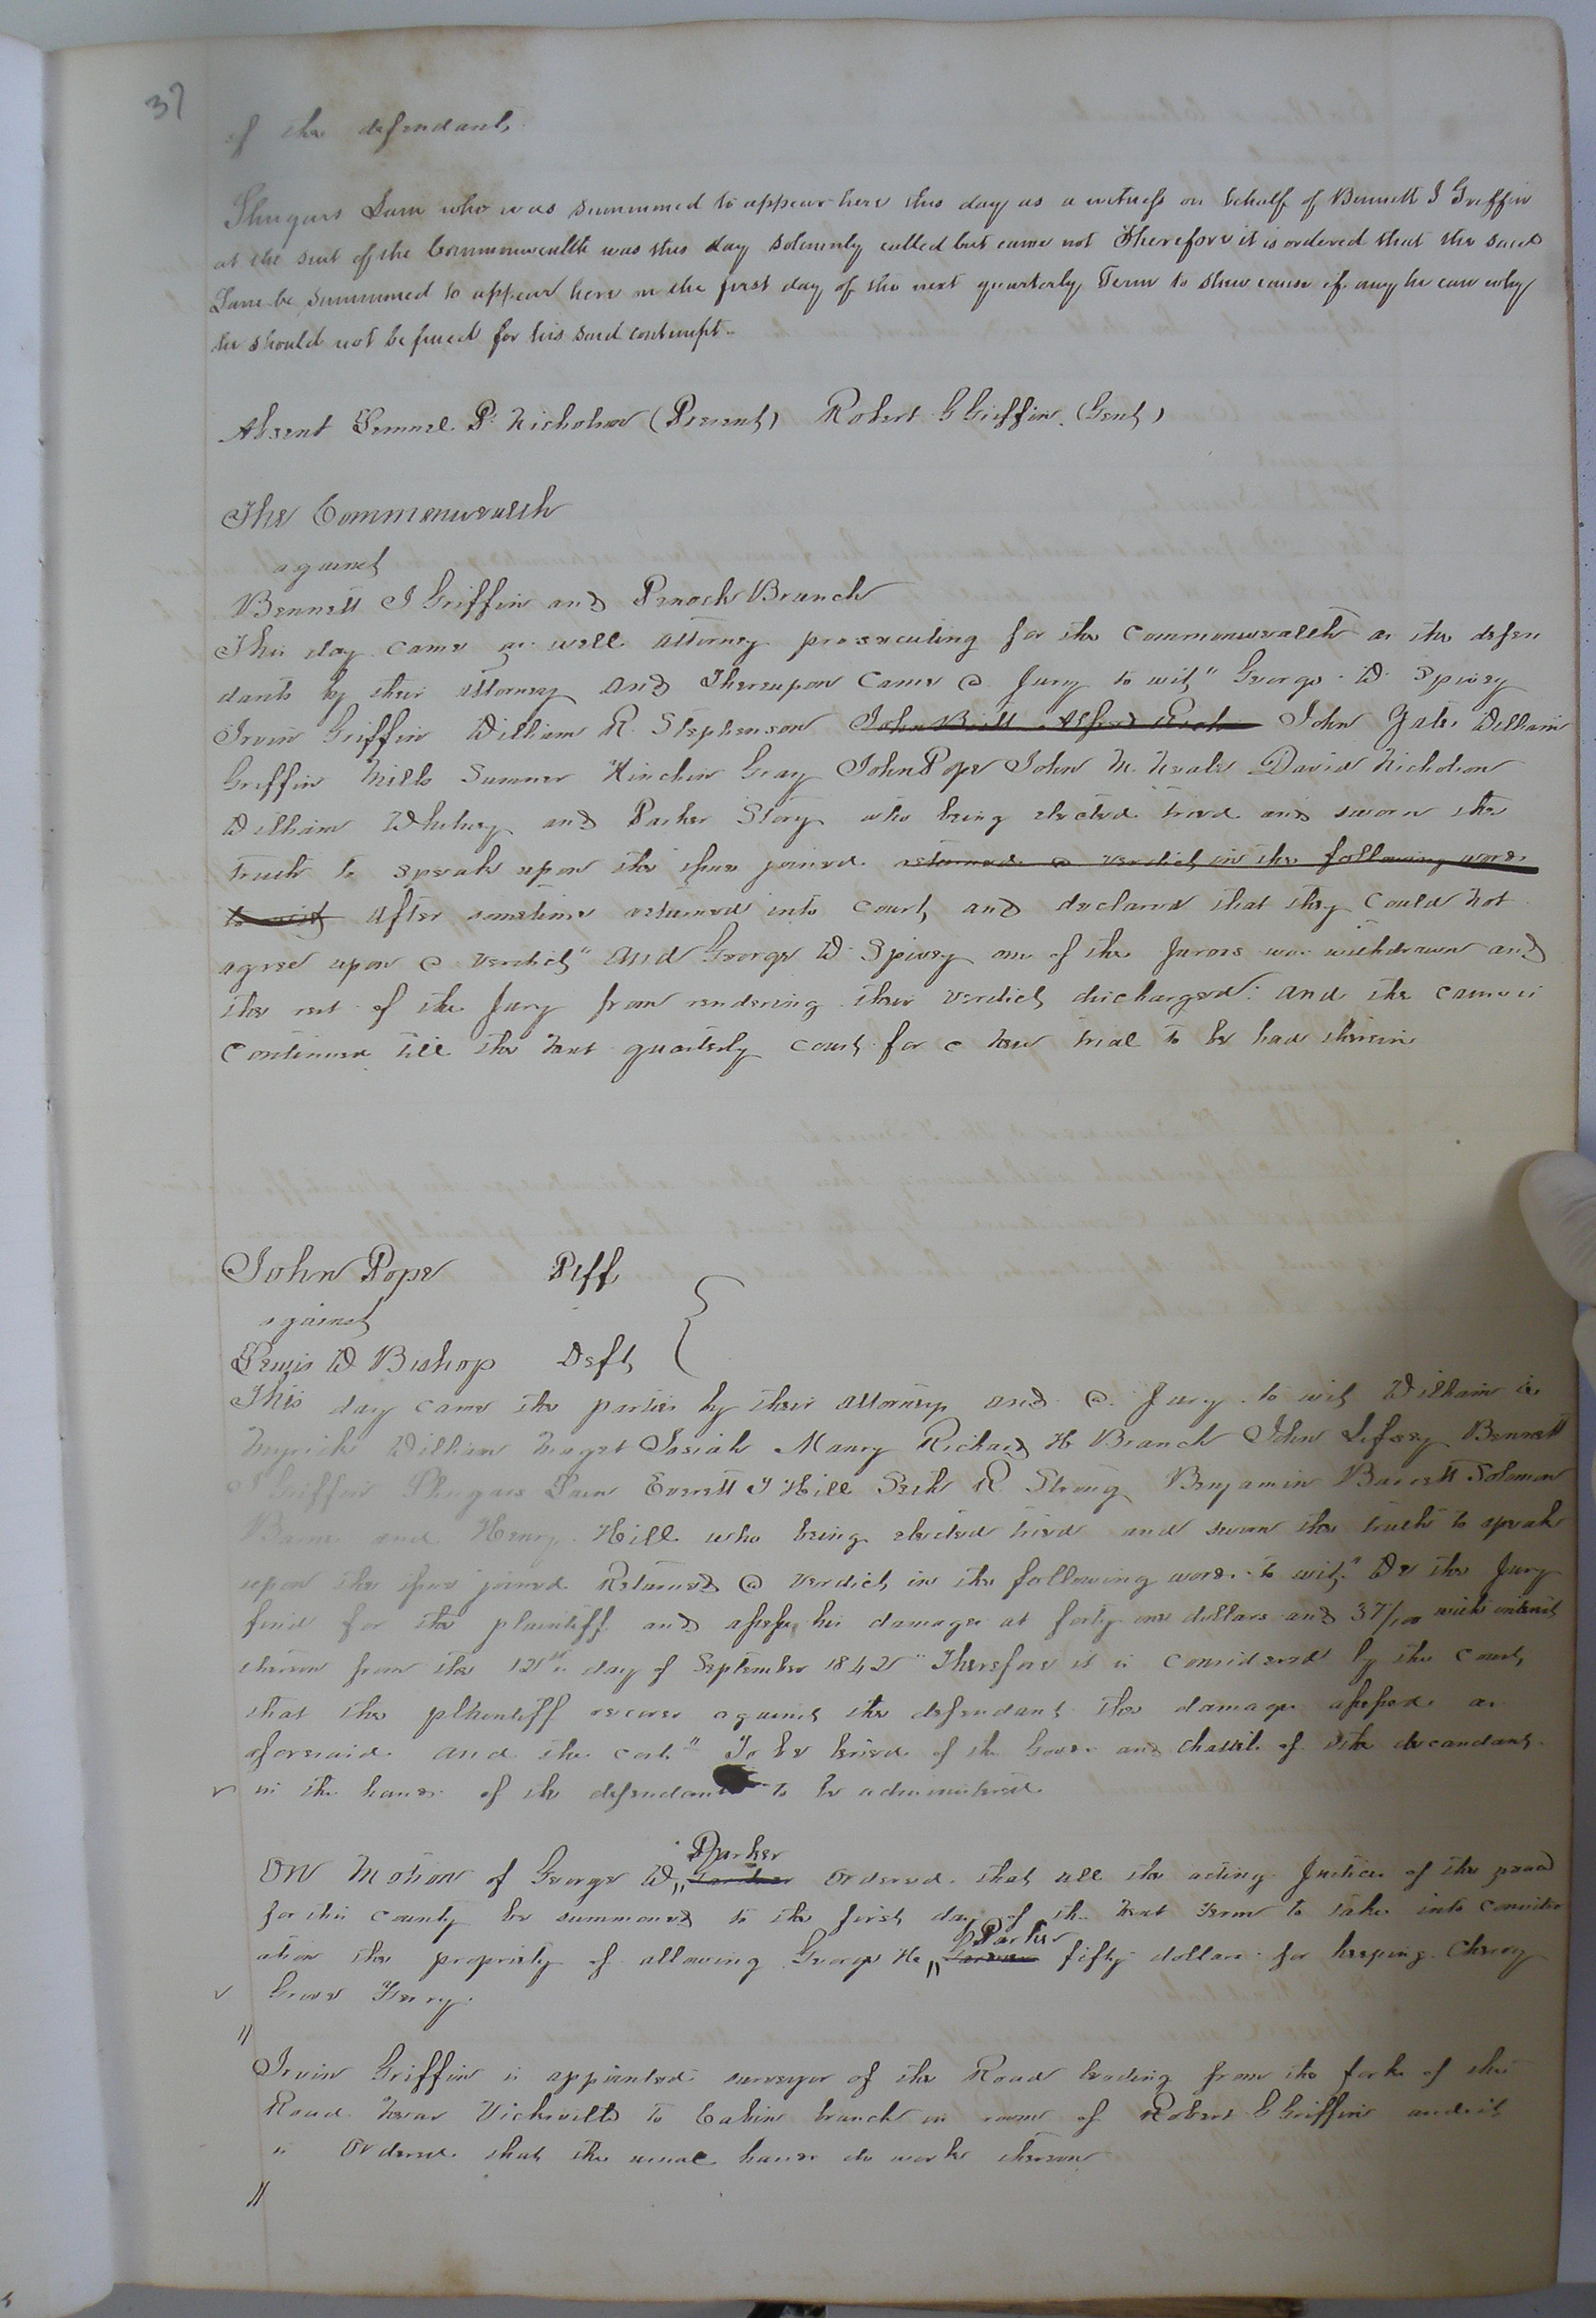 37
of the defendant
Shugars Lain who was summoned to appear here this day as a witness on behalf of Bennett J Griffin
at the suit of the Commonwealth was this day solemnly called but came not Therefore it is ordered that the said
Lain be summoned to appear here on the first day of the next quarterly Term to shew cause if any he can why
he should not be fined for his said contempt
Absent Lemuel P. Nicholson (Present) Robert G Griffin (Gent)
The Commonwealth
against
Bennett J Griffin and Branch
This day came as well attorney prosecuting for the commonwealth as the defen
dants by their attorney and Thereupon Came a Jury to wit" George W Spivey
Irvin Griffin William R. Stephenson John Britt John Gates William
Griffin Mills Sumner Hinchin Gray John Pope John M. Neale David Nicholson
William Whitney and Parker Story who being elected tried and sworn the
truth to speak upon the issue joined returned a verdict in the following words
to wit after sometime returned into court and declared that they could not
agree upon a verdict" and George W Spivey one of the Jurors was withdrawn and
the rest of the Jury from rendering their verdict discharged. and the cause is
continued till the next quarterly court for a new trial to be had therein
John Pope Plff
against
Lewis W Bishop Deft
This day came the parties by their attorneys and a Jury to wit William
Myrick William Maget Josiah Maury Richard H Branch John Lefsey Bennett
J Griffin Shugars Lain Everett J Hill Seth R Strong Benjamin Barrett Solomon
and Henry Hill who being elected tried and sworn the truth to speak
upon the issue joined Returned a verdict in the following words to wit," We the Jury
find for the plaintiff and assess his damages at forty one dollars and 37/100 with interest
thereon from the 12th day of September 1842" Therefore it is considered by the court
that the plaintiff recover against the defendant the damages assessed as
aforesaid and the costs" To be levied of the Goods and chattels of the decendant
in the hands of the defendant to be administered
Parker
On Motion of George W Ordered that all the acting Justices of the peace
for this county be summoned to the first day of the next term to take into consider
Parker
ation the propriety of allowing George H fifty dollars for keeping Cherry
Henry.
Irvin Griffin is appointed surveyor of the Road leading from the fork of the
Road near Vicksville to Cabin branch in room of Robert G Griffin and it
is Ordered that the usual hands do work thereon